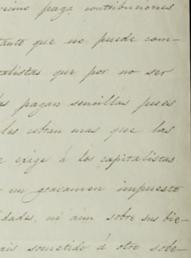 paga contribuciones
que no puede com-
talistas que por no ser
las pagan sencillas pues
les cobran mas que las
exige á los capitalistas
un gravamen impuesto
dades, ni aun sobre sus bie-
sometido á otro sobe-